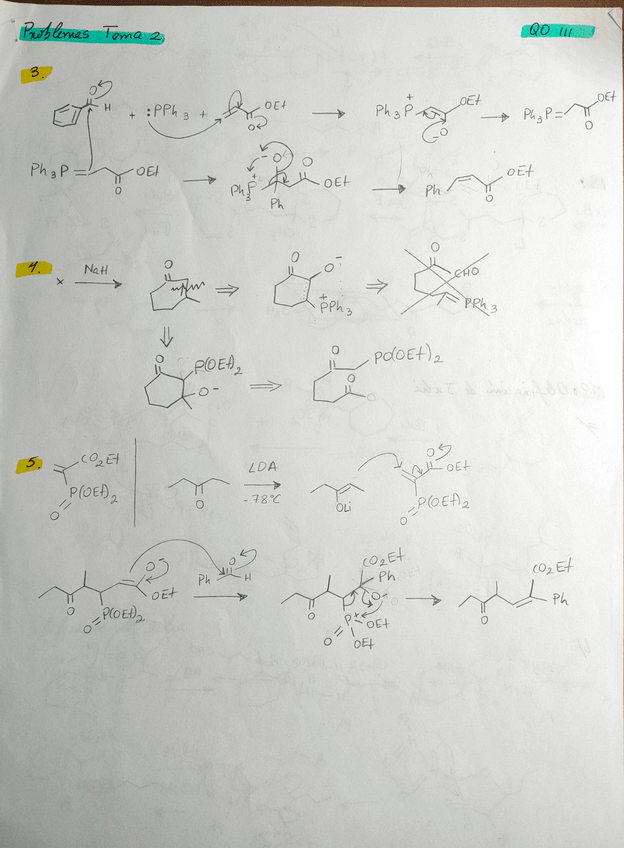 Problemas Tema 2 QO III
3.
O H + :PPh3 + OEt O Ph3P+ OEt O Ph3P= OEt O
Ph3P= OEt O O Ph3P+ Ph O OEt Ph O OEt
4. x NaH O O O- +PPh3 O CHO PPh3
O P(OEt)2 O- O PO(OEt)2 O O
5. CO2Et P(OEt)2 O O LDA -78°C OLi O OEt P(OEt)2 O
O O=P(OEt)2 O- OEt Ph O H O CO2Et Ph O- O=P+ OEt OEt O CO2Et Ph